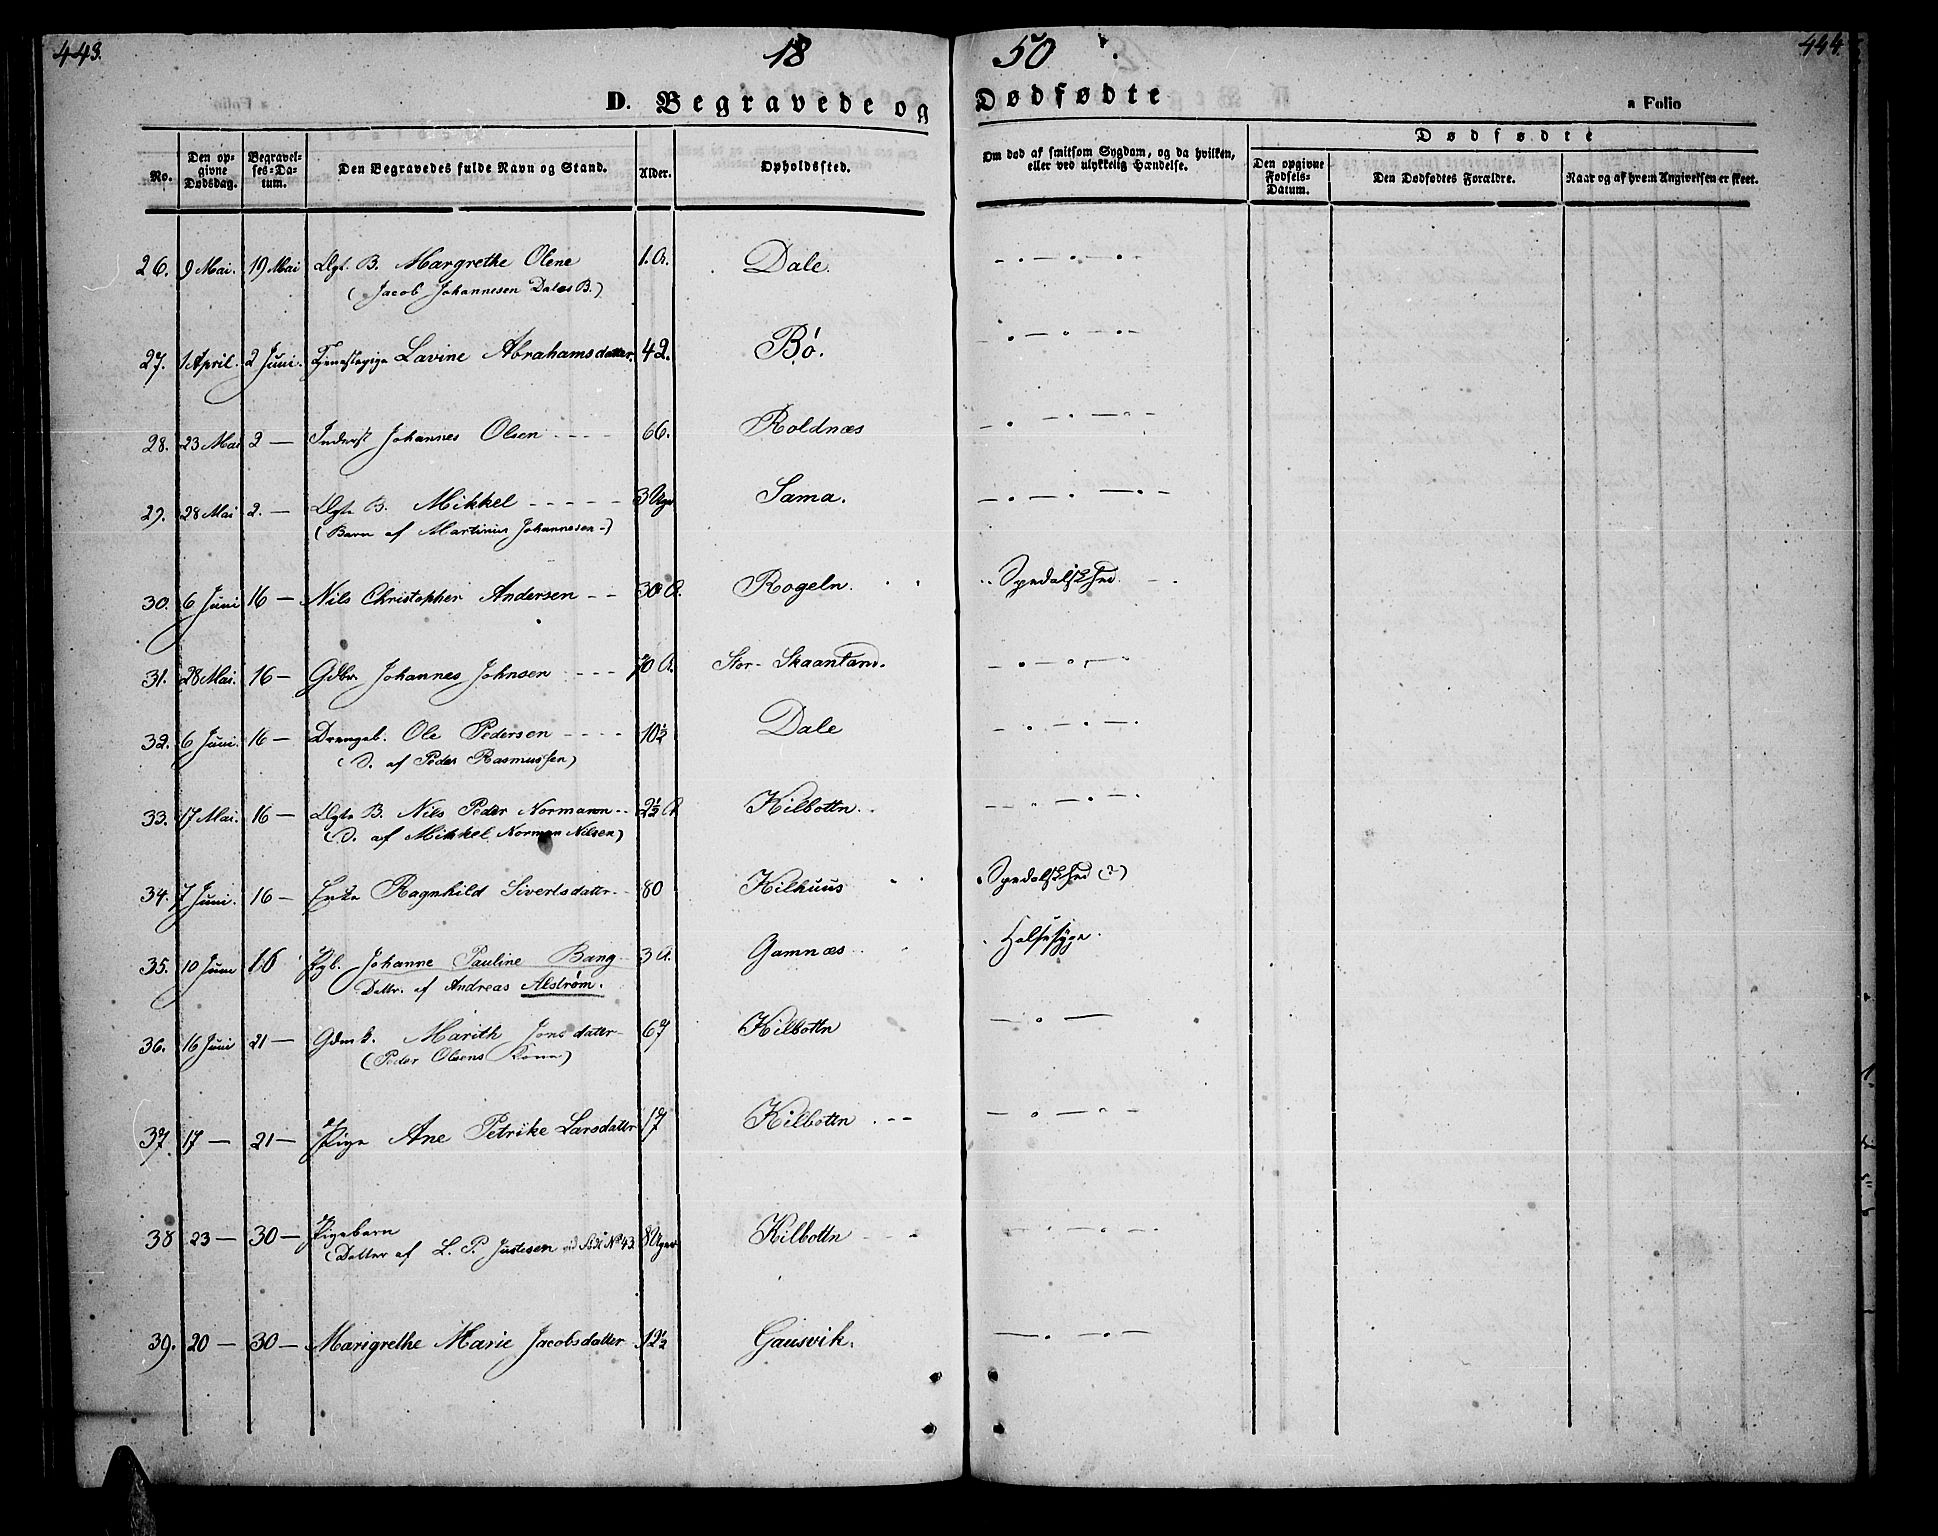 443.
18
50
444.
D. Begravede og
Dødfødte
a Folio
No.
Den opgivne Dødsdag.
Begravelses-Datum.
Den Begravedes fulde Navn og Stand.
Alder.
Opholdssted.
Om død af smitsom Sygdom, og da hvilken, eller ved ulykkelig Hændelse.
Dødfødte
Den opgivne Fødsels-Datum.
Den Dødfødtes Forældre.
Naar og af hvem Angivelsen er skeet.
26. 9 Mai. 19 Mai Ægt. B. Margrethe Olene 1. A. Dale.
(Jacob Johannesen Dales B.)
27. 1 April. 2 Juni. Tjenestepige Lavine Abrahamsdatter 42. Bø.
28. 23 Mai 2 — Inderst Johannes Olsen 66. Roldnæs
29. 28 Mai 2. — Ægte B. Mikkel 3 Uger Sama.
(Barn af Martinus Johannesen)
30. 6 Juni 16 — Nils Christopher Andersen 30 A. Rogeln. Spedalskhed
31. 28 Mai. 16 — Gdbr. Johannes Johnsen 70 A. Stor-Skaanland.
32. 6 Juni. 16 — Drengeb. Ole Pedersen 10½ Dale
(S. af Peder Rasmussen)
33. 17 Mai. 16 — Ægte B. Nils Peder Normann 2½ A Kilbottn
(S. af Mikkel Norman Nilsen)
34. 7 Juni. 16 — Enke Ragnhild Sivertsdattr 80 Kilhuus Spedalskhed (?)
35. 10 Juni 16 Pgb. Johanne Pauline Bang 3 A. Gamnæs Halsesyge.
Dattr. af Andreas Alstrøm.
36. 16 Juni 21 — Gdmk. Marith Jonsdatter 67 Kilbottn
(Peder Olsens Kone)
37. 17 — 21 — Pige Ane Petrike Larsdatter 17 Kilbottn
38 23 — 30 — Pigebarn
(Datter af L. P. Justesen vid No 43 8 Uger Kilbottn
39. 20 — 30 — Marigrethe Marie Jacobsdatter 12½ Gausvik.